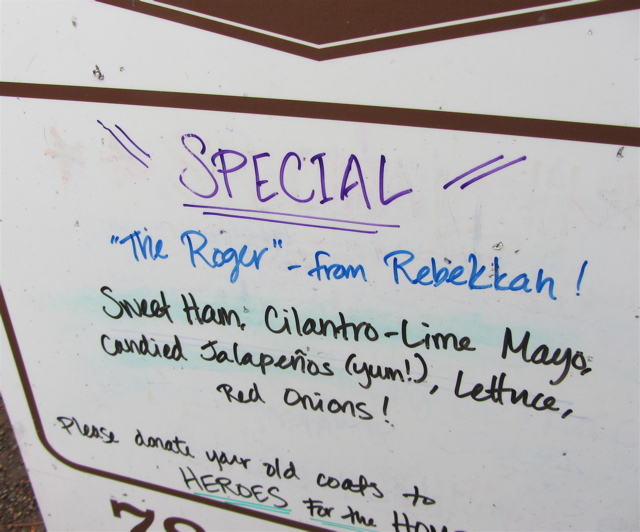 SPECIAL
"The Roger" - from Rebekkah!
Sweet Ham, Cilantro-Lime Mayo,
Candied Jalapeños (yum!), Lettuce,
Red Onions!
Please donate your old coats to
HEROES For the